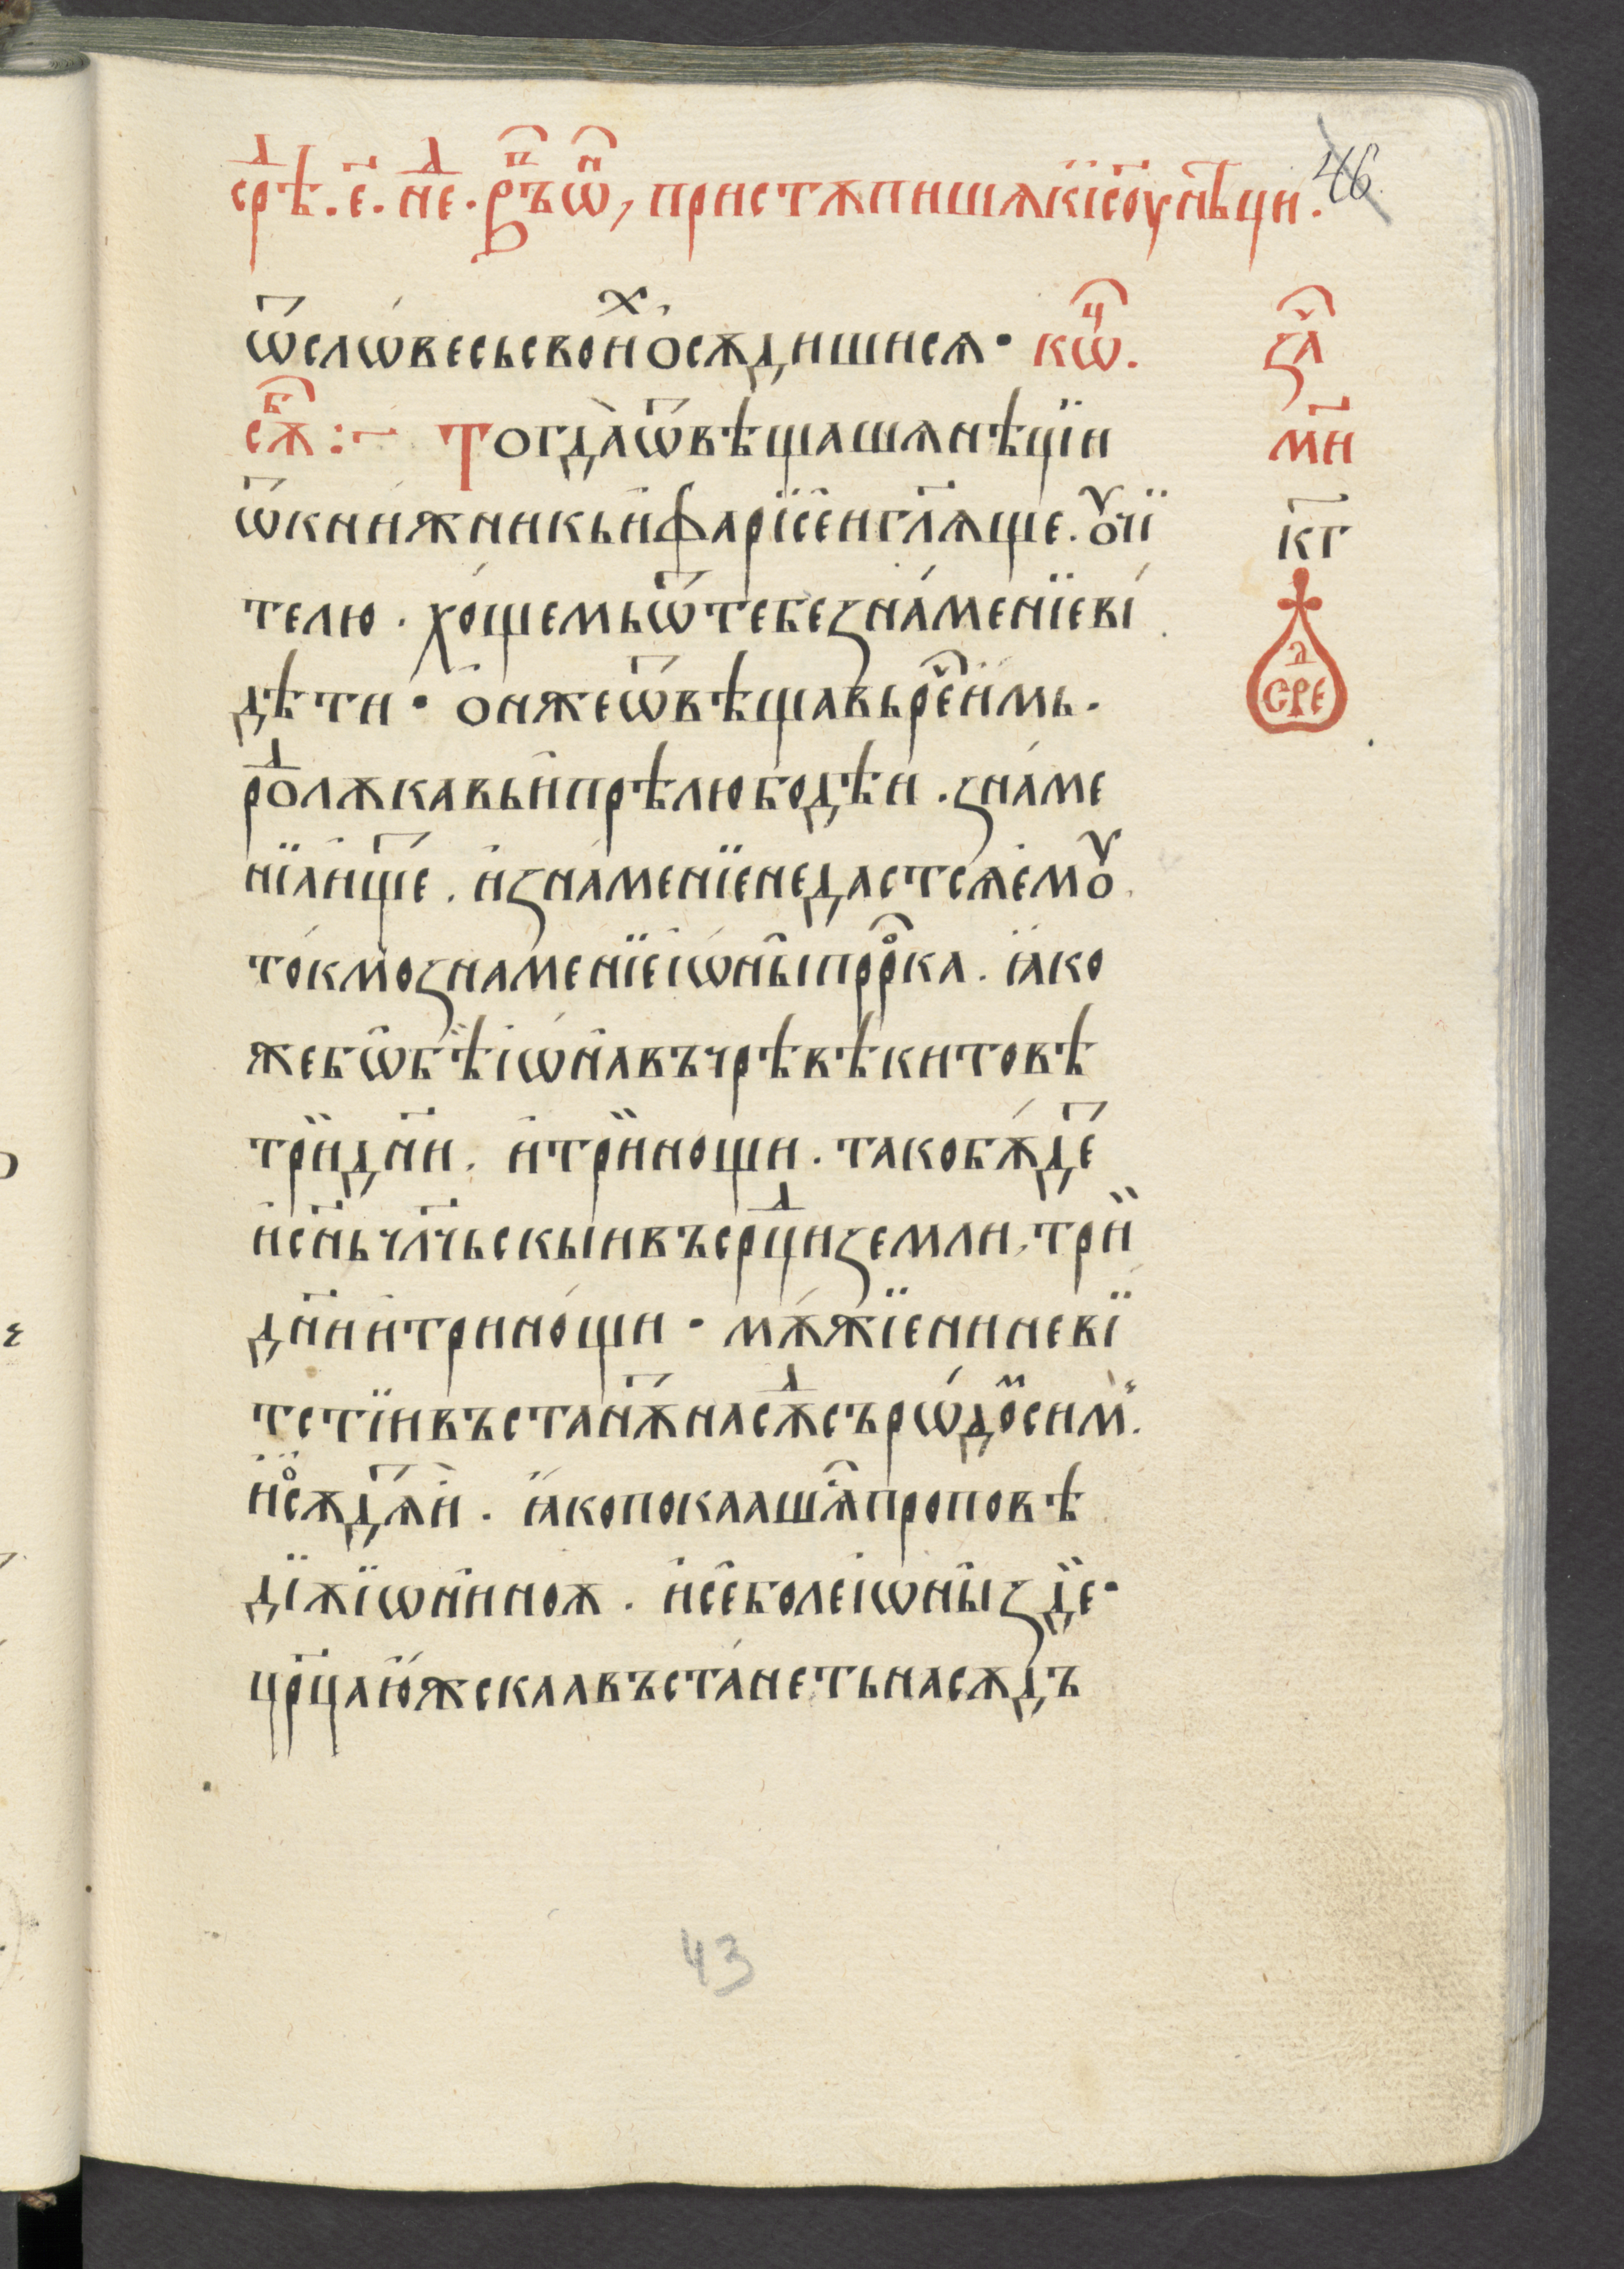 срѣ҇д. є҃. не҇д. ръ҇п ѿ҇н, пристѫпишѫ к і҃соу нѣ҇ци. 46
ѿ слѡвесь свои҇х ѻсѫдишисѧ · кѡ҇ч.
сѫ҇б :~ Тогда̀ ѿвѣщашѧ нѣцїи
ѿ книжникь и҆ фарїсе́и гл҃ѧще. ѹ҆чї
телю. хо́щемь ѿ тебе зна́менїе ві
дѣти · ѻ҆н же ѿвѣщавь ре҇ч и҆мь.
ро҇д лѫкавь и҆ прѣлюбодѣи. зна́ме
нїа и҆ще҇т. и҆ зна́менїе не дастсѧ емꙋ
то́кмо зна́менїе і҆ѡны̀ про҇рка. ꙗ҆ко
же бѡ бѣ і҆ѡ́на въ чрѣвѣ китовѣ
трѝ дн҃и. и҆ трѝ нощи. тако бѫ́де҇т
и҆ сн҃ь чл҃чьскыи въ ср҃ци земли, трѝ
дн҃и и҆ три но́щи · мѫ́жїе нїневі
тстїи въстанѫ҇т на сѫ҇д съ рѡ́до҇м сим̾.
и҆ ѻ҆сѫдѧ҇т и҆. ꙗ҆ко покаашѧ҇с проповѣ
дїѫ і҆ѡниноѫ. и҆ се́ боле і҆ѡны̀ здѐ·
цр҃ца ю҆жскаа въста́неть на сѫдъ
за҇ч
м҃и
к҃г
сре҇д
43